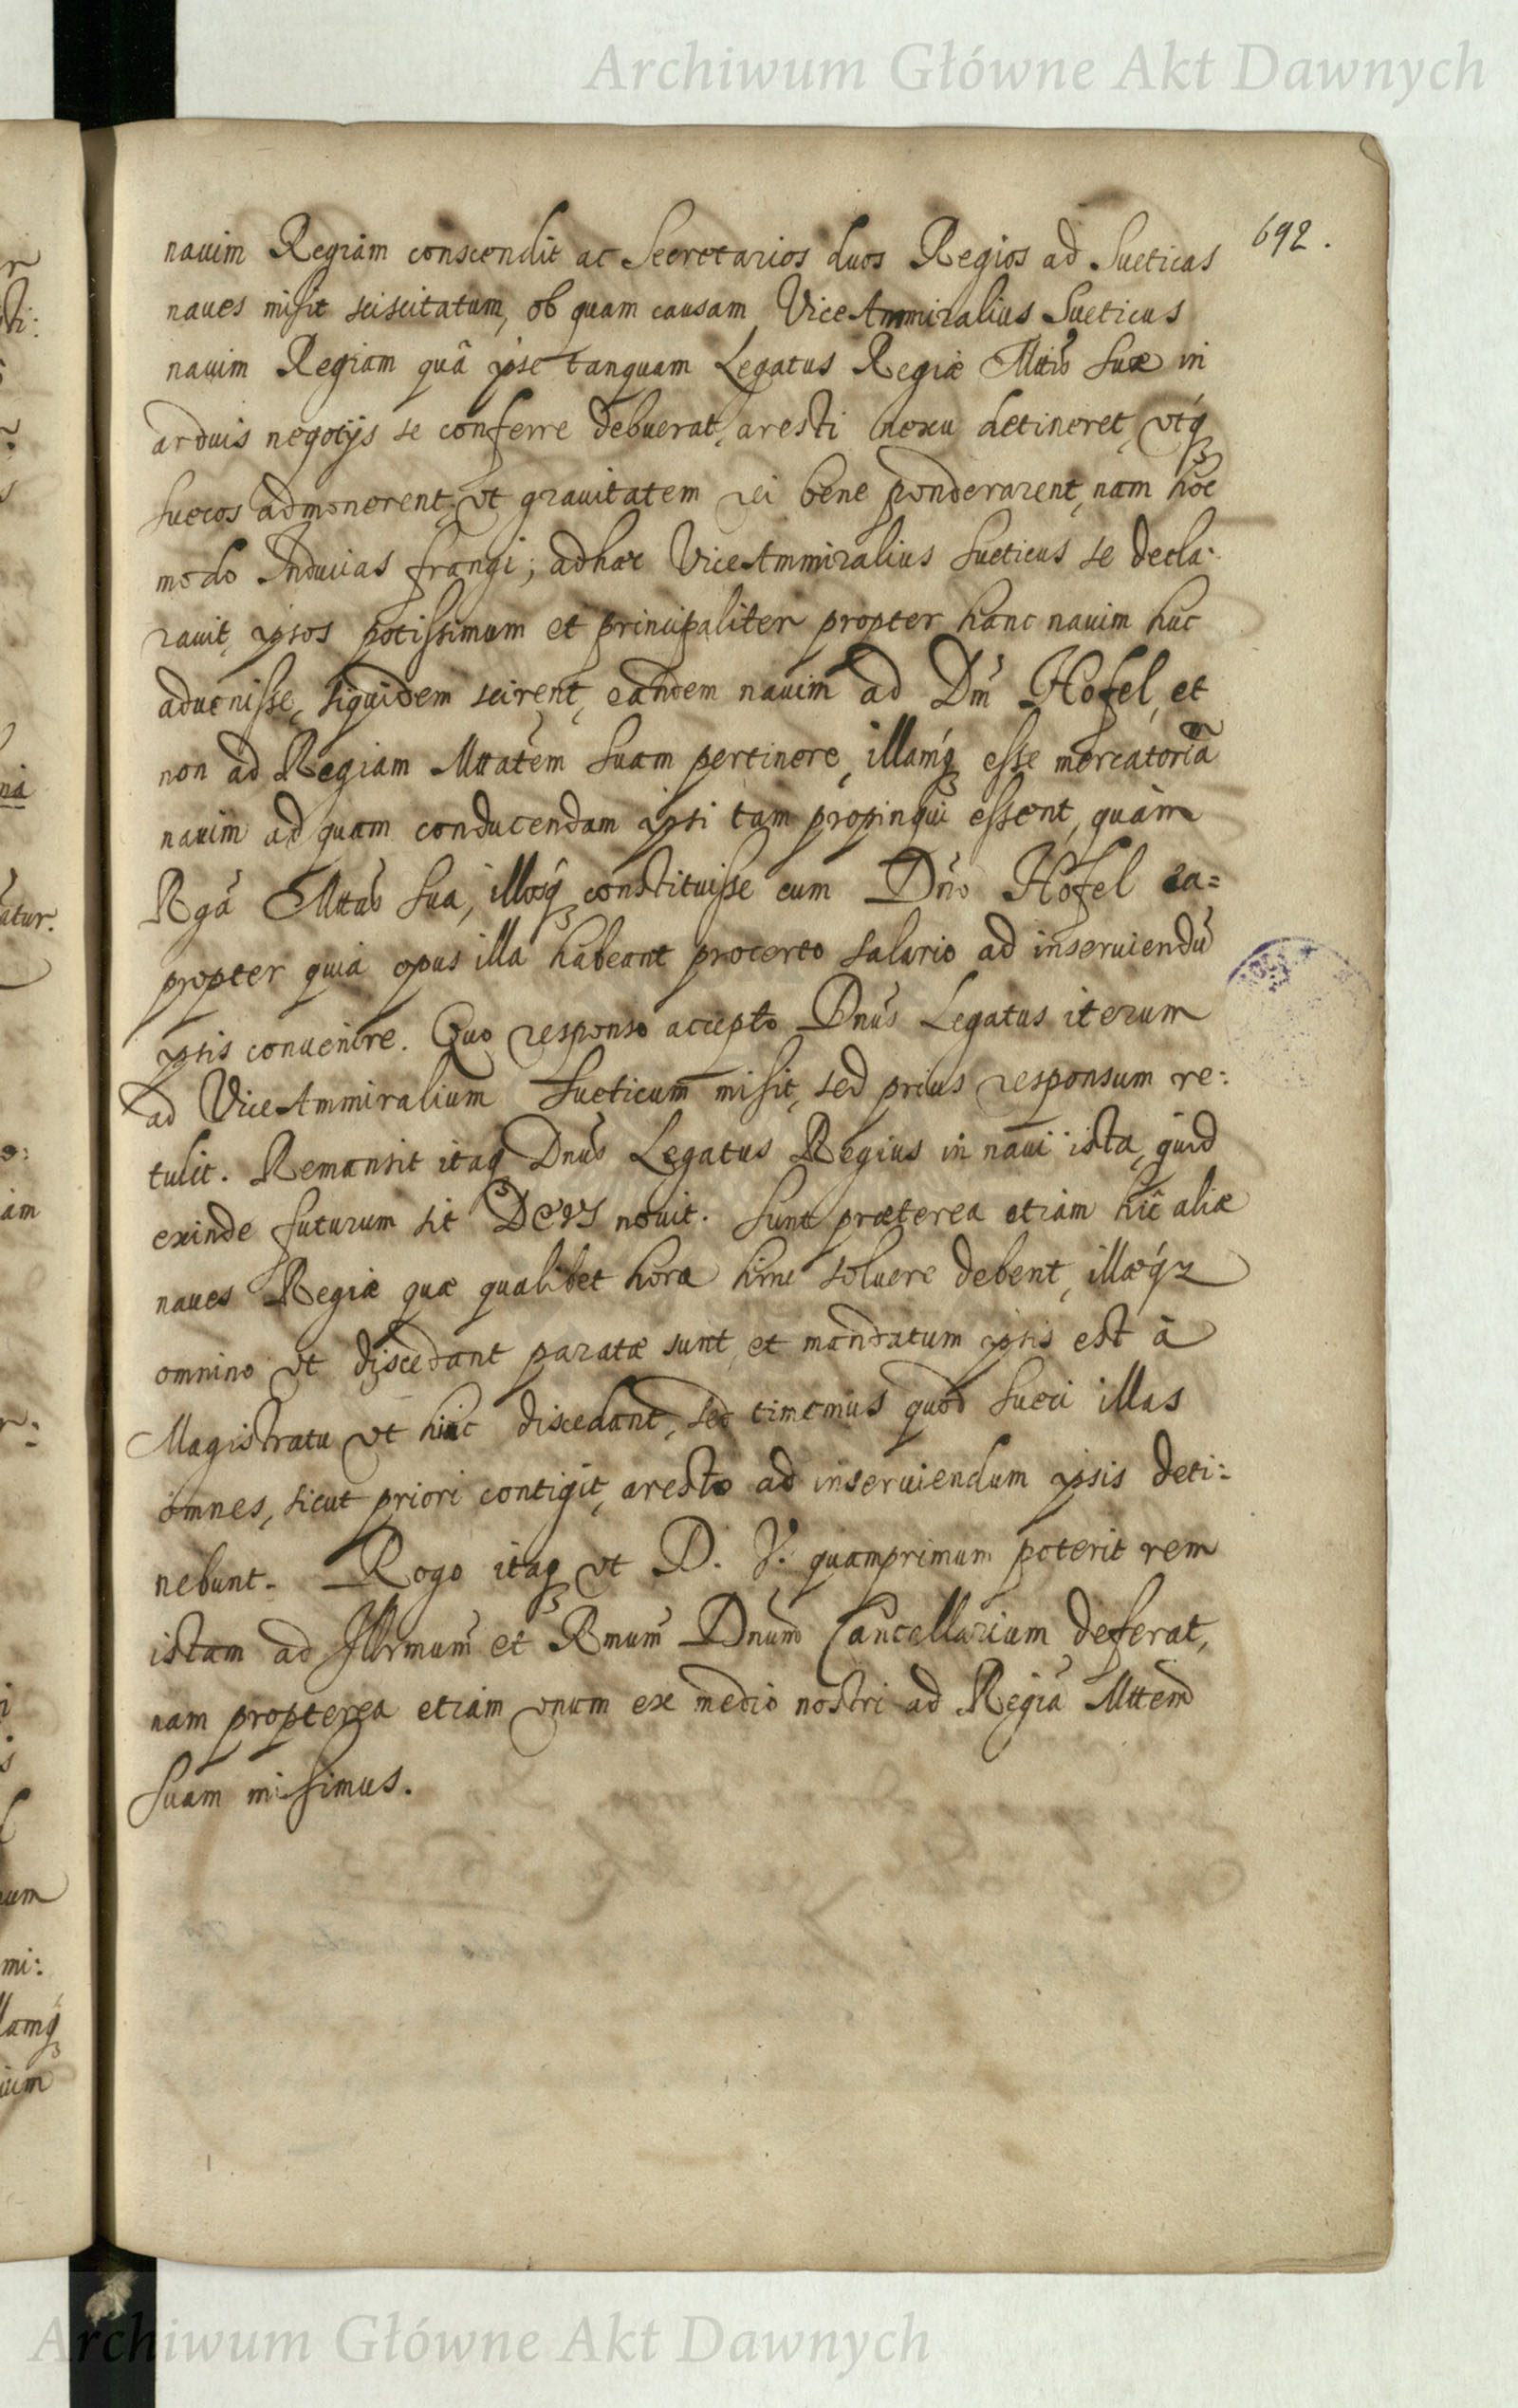 Archiwum Główne Akt Dawnych
692.
nauim Regiam conscendit ac Secretarios duos Regios ad Sueticas
naues misit sciscitatum, ob quam causam ViceAmmiralius Sueticus
nauim Regiam quâ ipse tanquam Legatus Regiæ Mttis suæ in
arduis negotijs se conferre debuerat, aresti nexu detineret, vtq3
Suecos admonerent, vt grauitatem rei bene ponderarent, nam hoc
modo Inducias frangi; ad hæc ViceAmmiralius Sueticus se decla:
rauit, ipsos potissimum et principaliter propter hanc nauim huc
aduenisse, siquidem scirent, eandem nauim ad Dnm̃ Hofel, et
non ad Regiam Mttatem Suam pertinere, illamq3 esse mercatoriã
nauim ad quam conducendam ipsi tam propinqui essent, quàm
Rgã Mttas Sua, illosq3 constituisse cum Dn̄o Hofel ea=
propter quia opus illa habeant pro certo salario ad inseruiendũ
ipsis conuenire. Quo responso accepto Dnũs Legatus iterum
ad ViceAmmiralium Sueticum misit, sed prius responsum re:
tulit. Remansit itaq3 Dnũs Legatus Regius in naui ista, quid
exinde futurum sit DEVS nouit. Sunt præterea etiam hîc aliæ
naues Regiæ quæ qualibet hora hinc soluere debent, illæq3
omnino vt discedant paratæ sunt, et mandatum ipsis est à
Magistratu vt hinc discedant, sed timemus quod Sueci illas
omnes, sicut priori contigit, aresto ad inseruiendum ipsis deti:
nebunt. Rogo itaq3 vt D. V. quamprimum poterit rem
istam ad Illrmum̃ et Rmum̃ Dnum̃ Cancellarium deferat,
nam propterea etiam vnum ex medio nostri ad Regiã Mttem
Suam misimus.
Archiwum Główne Akt Dawnych